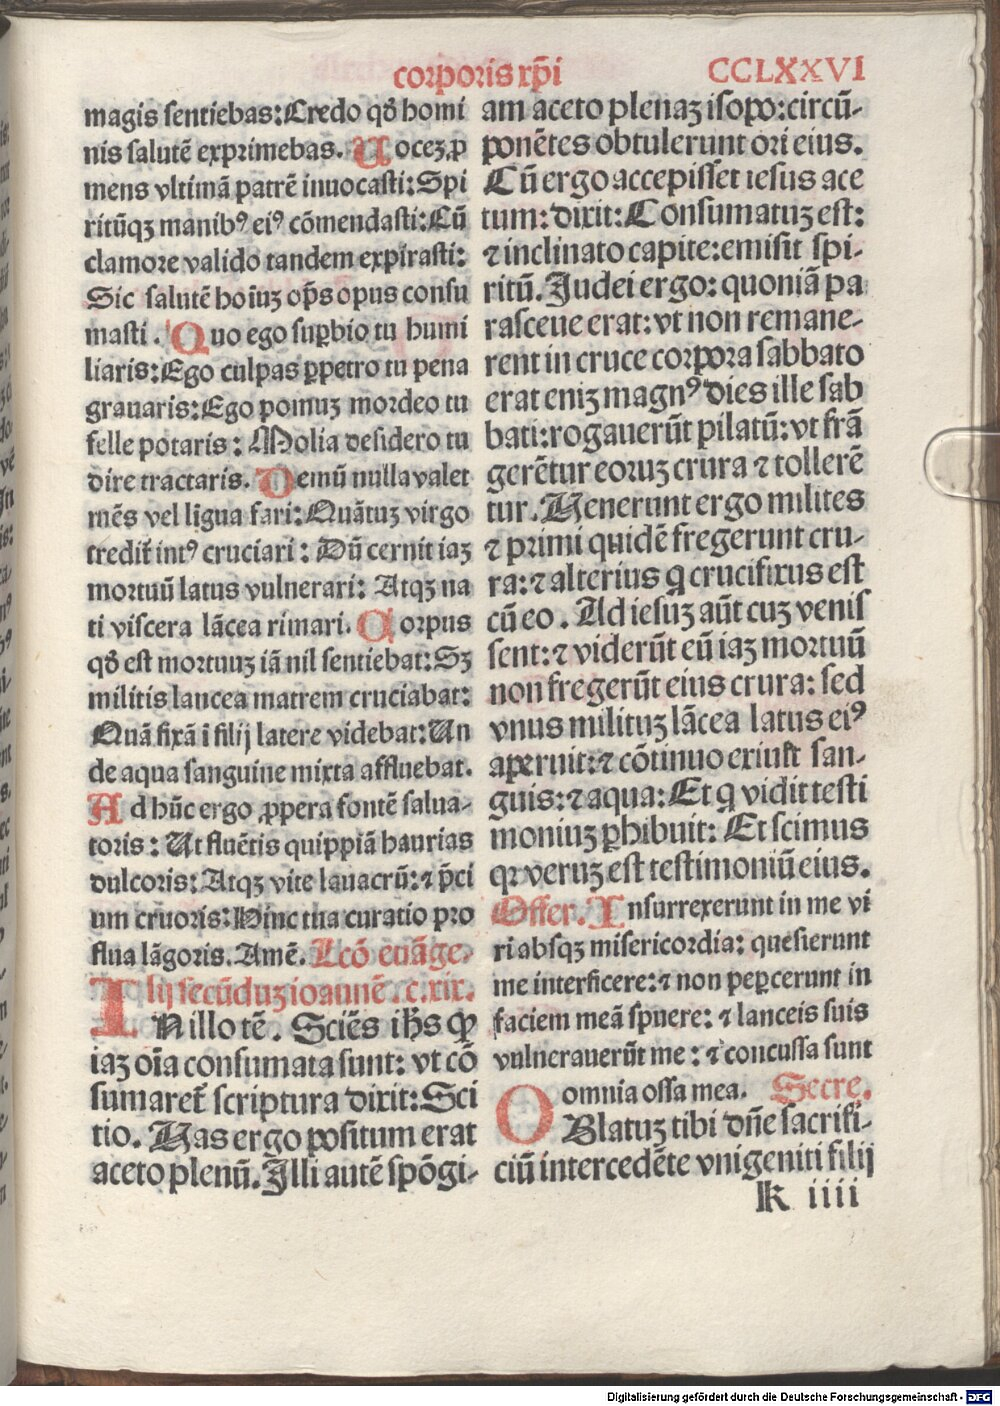 corporis xp̄i
CCLXXVI
magis sentiebas: Credo qđ homi
nis salutē exprimebas. Uocez ꝓ
mens vltimā patrē inuocasti: Spi
ritūqꝫ manibꝰ eiꝰ cōmendasti: Cū
clamore valido tandem expirasti:
Sic salutē hoīuꝫ op̄s opus consu
masti. Quo ego suꝑbio tu humi
liaris: Ego culpas ꝑpetro tu pena
grauaris: Ego pomuꝫ mordeo tu
felle potaris: Molia desidero tu
dire tractaris. Demū nulla valet
mēs vel līgua fari: Quātuꝫ virgo
credit᷑ intꝰ cruciari: Dū cernit iaꝫ
mortuū latus vulnerari: Atqꝫ na
ti viscera lācea rimari. Corpus
qđ est mortuuꝫ iā nil sentiebat: Sꝫ
militis lancea matrem cruciabat:
Quā fixā ī filij latere videbat: Un
de aqua sanguine mixta affluebat.
Ad hūc ergo ꝓpera fontē salua-
toris: Ut fluētis quippiā haurias
dulcoris: Atqꝫ vite lauacrū: ⁊ p̄ci
um cruoris: Hinc tua curatio pro
flua lāgoris. Amē. Lcō euāge-
lij secūduꝫ ioannē. c. xix.
IN illo tē. Sciēs ih̄s ꝙ
iaꝫ oīa consumata sunt: vt cō
sumaret᷑ scriptura dixit: Sci
tio. Uas ergo positum erat
aceto plenū. Illi autē spōgi-
am aceto plenaꝫ isopo: circū-
ponētes obtulerunt ori eius.
Cū ergo accepisset iesus ace
tum: dixit: Consumatuꝫ est:
⁊ inclinato capite: emisit spi-
ritū. Judei ergo: quoniā pa
rasceue erat: vt non remane-
rent in cruce corpora sabbato
erat eniꝫ magnꝰ dies ille sab
bati: rogauerūt pilatū: vt frā
gerētur eoruꝫ crura ⁊ tollerē
tur. Uenerunt ergo milites
⁊ primi quidē fregerunt cru-
ra: ⁊ alterius q̄ crucifixus est
cū eo. Ad iesuꝫ aūt cuꝫ venis
sent: ⁊ viderūt eū iaꝫ mortuū
non fregerūt eius crura: sed
vnus milituꝫ lācea latus eiꝰ
aperuit: ⁊ cōtinuo exiuit san-
guis: ⁊ aqua: Et q̄ vidit testi
moniuꝫ ꝑhibuit: Et scimus
qꝛ veruꝫ est testimoniū eius.
Offer. Insurrexerunt in me vi
ri absqꝫ misericordia: quesierunt
me interficere: ⁊ non peꝑcerunt in
faciem meā spuere: ⁊ lanceis suis
vulnerauerūt me: ⁊ concussa sunt
omnia ossa mea. Secre.
OBlatuꝫ tibi dn̄e sacrifi-
ciū intercedēte vnigeniti filij
k iiii
Digitalisierung gefördert durch die Deutsche Forschungsgemeinschaft - DFG